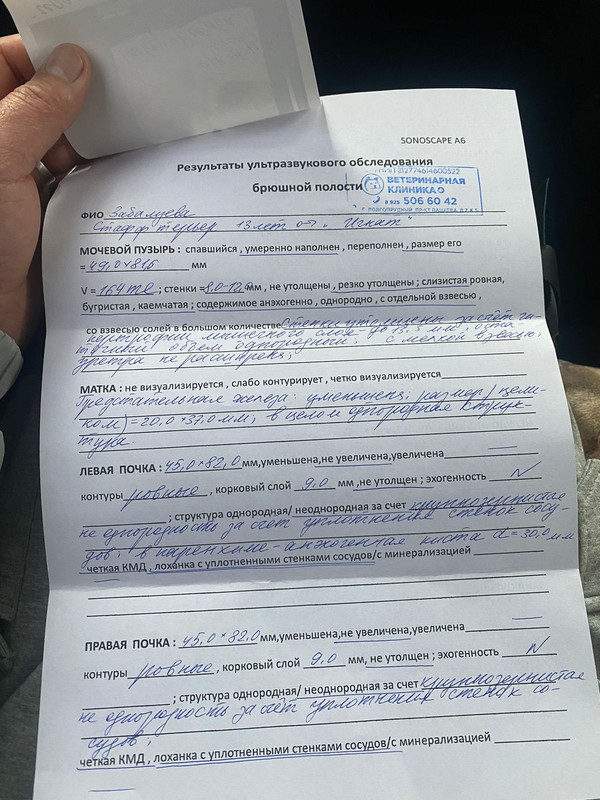 SONOSCAPE A6
Результаты ультразвукового обследования
брюшной полости
1312774614600522
ВЕТЕРИНАРНАЯ
КЛИНИКА
8 925 506 60 42
Г. ДОЛГОПРУДНЫЙ ПР-КТ ПАЦАЕВА Д.7 К.1
ФИО Забалуева
Стафф. терьер 13 лет "Игнат"
МОЧЕВОЙ ПУЗЫРЬ : спавшийся , умеренно наполнен , переполнен , размер его
= 49,0 × 81,6 мм
V = 164 ml ; стенки = 8,0-12,0 мм , не утолщены , резко утолщены ; слизистая ровная,
бугристая , каемчатая ; содержимое анэхогенно , однородно , с отдельной взвесью ,
со взвесью солей в большом количестве Стенки утолщены за счёт ги-
пертрофии мышечного слоя - до 13,5 мм ; оста-
точный объем однородный. с мелкой взвесью,
уретра не расширена,
МАТКА : не визуализируется , слабо контурирует , четко визуализируется
Предстательная железа: уменьшена, размер (цели-
ком) = 20,0 × 37,0 мм, в целом однородная струк
тура.
ЛЕВАЯ ПОЧКА : 45,0 × 82,0 мм,уменьшена,не увеличена,увеличена —
контуры ровные , корковый слой 9,0 мм ,не утолщен ; эхогенность N
; структура однородная/ неоднородная за счет крупнозернистая
не однородность за счет уплотнения стенок сосу-
дов, в паренхиме - анэхогенная киста d = 30,0 мм
четкая КМД , лоханка с уплотненными стенками сосудов/с минерализацией
ПРАВАЯ ПОЧКА : 45,0 × 82,0 мм,уменьшена,не увеличена,увеличена —
контуры ровные , корковый слой 9,0 мм, не утолщен ; эхогенность N
; структура однородная/ неоднородная за счет крупнозернистая
не однородность за счёт уплотнения стенок со-
судов ;
четкая КМД , лоханка с уплотненными стенками сосудов/с минерализацией